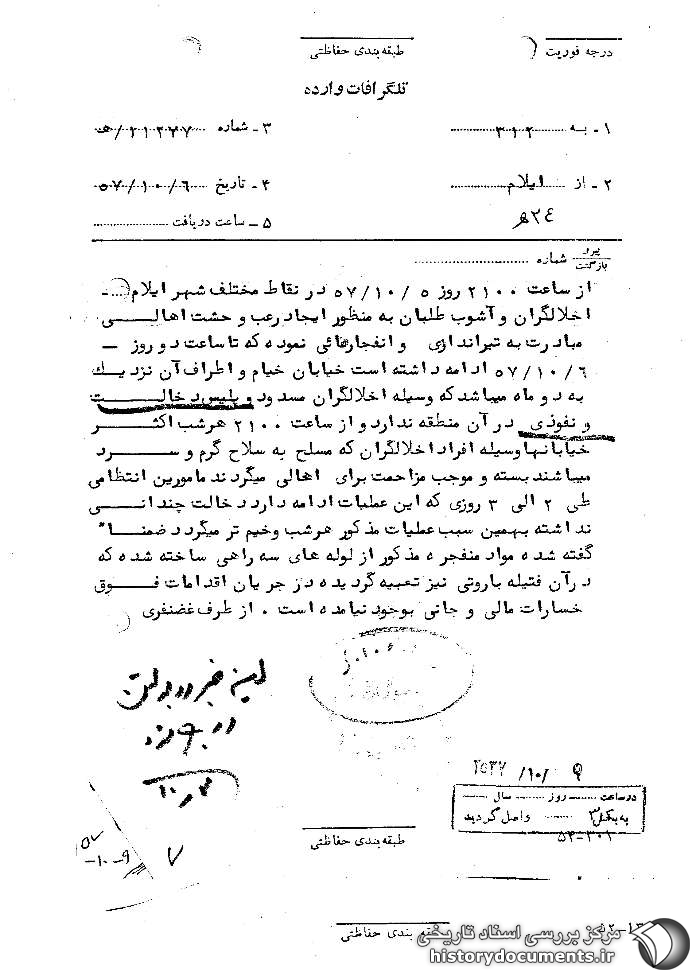 درجه فوریت
طبقه‌بندی حفاظتی
تلگرافات وارده
۱ـ به ۳۱۲
۳ـ شماره ۲۱۲۷۷/هـ
۲ـ از ایلام
۴ـ تاریخ ۵۷/۱۰/۶
۲۴هـ
۵ـ ساعت دریافت
پیرو
بازگشت
شماره
از ساعت ۲۱۰۰ روز ۵/ ۵۷/۱۰ در نقاط مختلف شهر ایلام
اخلالگران و آشوب طلبان به منظور ایجاد رعب و حشت اهالی
مبادرت به تیراندازی و انفجارهائی نموده که تا ساعت دو روز –
۵۷/۱۰/۶ ادامه داشته است خیابان خیام و اطراف آن نزدیک
به دو ماه میباشد که وسیله اخلالگران مسدود و پلیس دخالت
و نفوذی در آن منطقه ندارد و از ساعت ۲۱۰۰ هر شب اکثر
خیابانها وسیله افراد اخلالگران که مسلح به سلاح گرم و سرد
میباشند بسته و موجب مزاحمت برای اهالی میگردند مامورین انتظامی
طی ۲ الی ۳ روزی که این عملیات ادامه دارد دخالت چندانی
نداشته بهمین سبب عملیات مذکور هر شب وخیم تر میگردد ضمنا"
گفته شده مواد منفجره مذکور از لوله های سه راهی ساخته شده که
در آن فتیله باروتی نیز تعبیه گردیده در جریان اقدامات فوق
خسارات مالی و جانی بوجود نیامده است . از طرف غضنفری
این خبر در بولتن
درج شود
۲۵۳۷ /۱۰/ ۹
در ساعت روز سال
به بخش ۳ واصل گردید
۵۴-۳۰۱
طبقه‌بندی حفاظتی
۵۷
-۱۰-۹
۷
طبقه بندی حفاظتی
۵۲-۱۳
مرکز بررسی اسناد تاریخی
historydocuments.ir